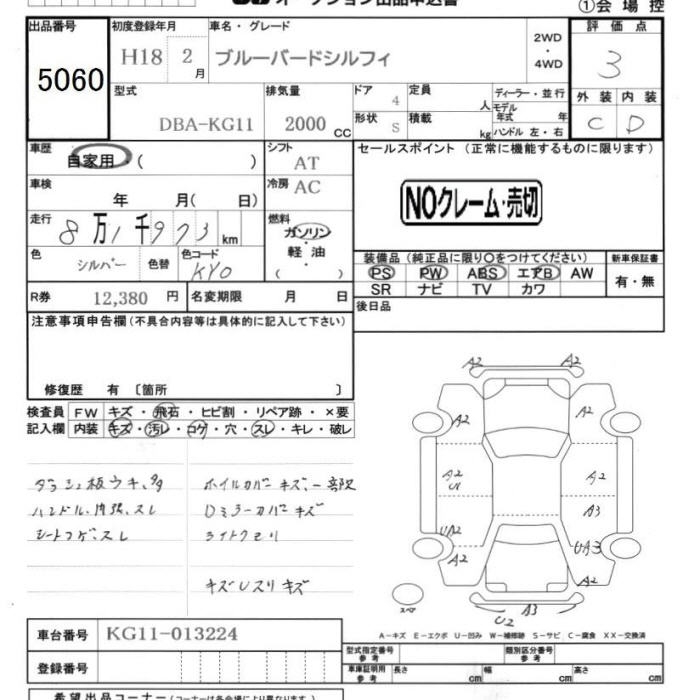 オークション出品申込書
①会場控
出品番号
5060
初度登録年月
H18 2月
車名・グレード
ブルーバードシルフィ
2WD
・
4WD
評価点
3
外装 内装
C D
型式
DBA-KG11
排気量
2000 CC
ドア 4
形状 S
定員 人
積載 kg
ディーラー・並行
モデル年式 年
ハンドル 左・右
車歴
自家用・( )
シフト
AT
セールスポイント (正常に機能するものに限ります)
NOクレーム・売切
車検
年 月( 日)
冷房
AC
走行
8万1千973km
燃料
ガソリン
・
軽油
( )
色
シルバー
色替
色コード
KY0
装備品(純正品に限り○をつけてください)
新車保証書
PS PW ABS エアB AW
SR ナビ TV カワ
有・無
R券 12,380 円
名変期限 月 日
後日品
注意事項申告欄(不具合内容等は具体的に記入して下さい)
修復歴 有 〔箇所 〕
検査員
記入欄
FW キズ・飛石・ヒビ割・リペア跡・×要
内装 キズ・汚レ・コゲ・穴・スレ・キレ・破レ
ダッシュ板ウキ、
ハンドル、内張、スレ
シートコゲ、スレ
ホイルカバーキズ、一部欠
Dミラーカバーキズ
ライトクモリ
キズUスリキズ
A2 A2
A2 A2
A2 U1
A2
A3
UA2
UA3
A2 A2
スペア
U2 A3
A−キズ E−エクボ U−凹み W−補修跡 S−サビ C−腐食 XX−交換済
車台番号 KG11-013224
登録番号
型式指定番号 参考
類別区分番号 参考
車庫証明用 参考
長さ cm 幅 cm 高さ cm
希望出品コーナー(コーナーは各会場により異なります)